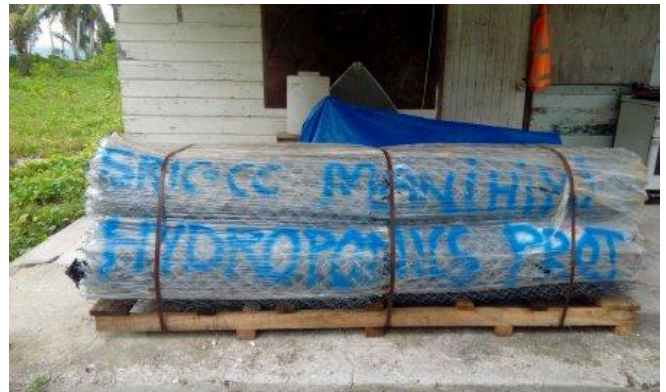 SRIC-CC MANIHIKI
HYDROPONICS PROJ